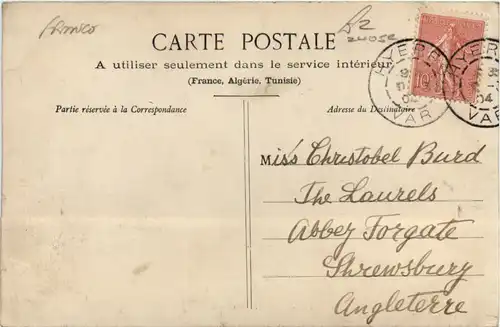 CARTE POSTALE
A utiliser seulement dans le service intérieur
(France, Algérie, Tunisie)
Partie réservée à la Correspondance
Adresse du Destinataire
HYÈRES
VAR
04
HYÈRES
VAR
04
10
Miss Christobel Burd
The Laurels
Abbey Forgate
Shrewsbury
Angleterre